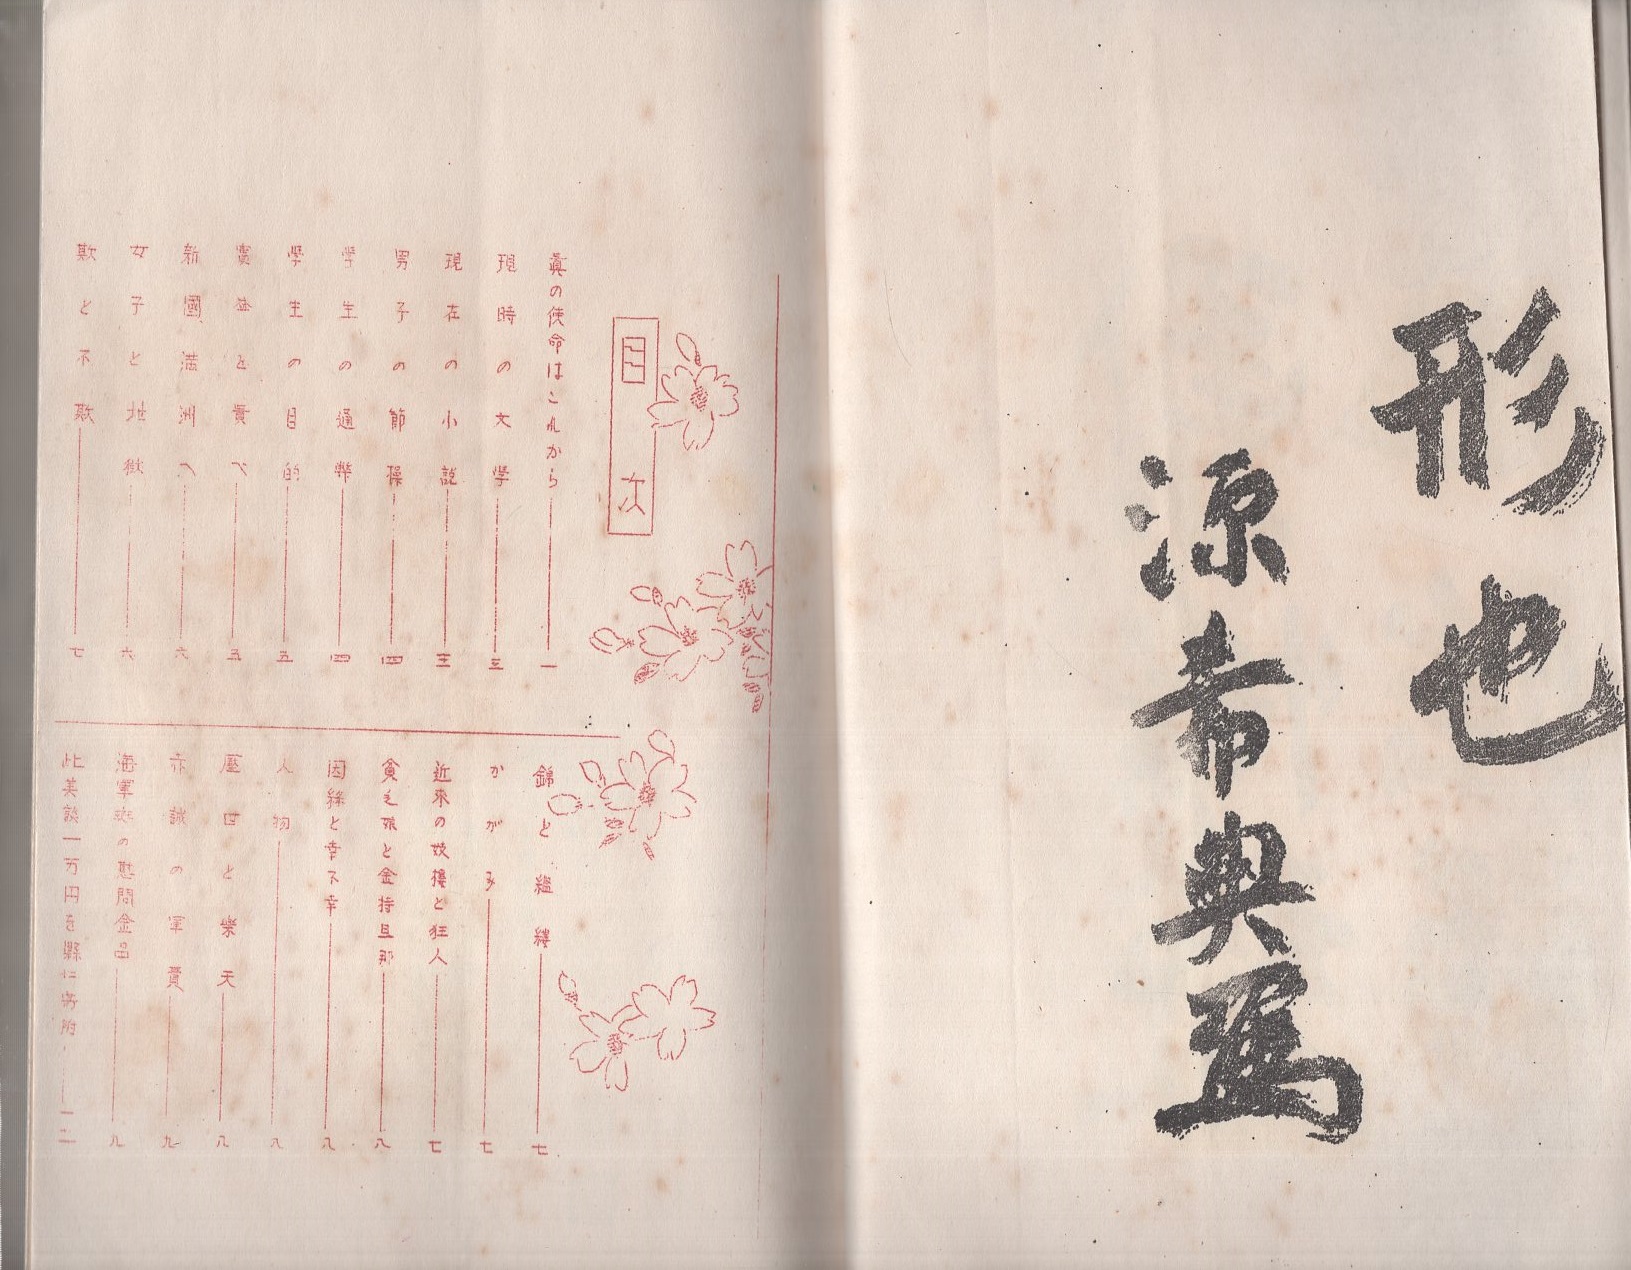 形也
源希典書
目次
眞の使命はこれから 一
現時の文學 三
現在の小説 三
男子の節操 四
学生の通弊 四
學生の目的 五
實益と貫べ 五
新國満洲へ 六
女子と地獄 六
欺と不欺 七
錦と繿縷 七
かがみ 七
近來の妓樓と狂人 七
貧乏娘と金持旦那 八
因縁と幸不幸 八
人物 八
壓世と樂天 八
赤誠の軍資 九
海軍班の慰問金品 九
此美談一万円を縣に寄附 一二